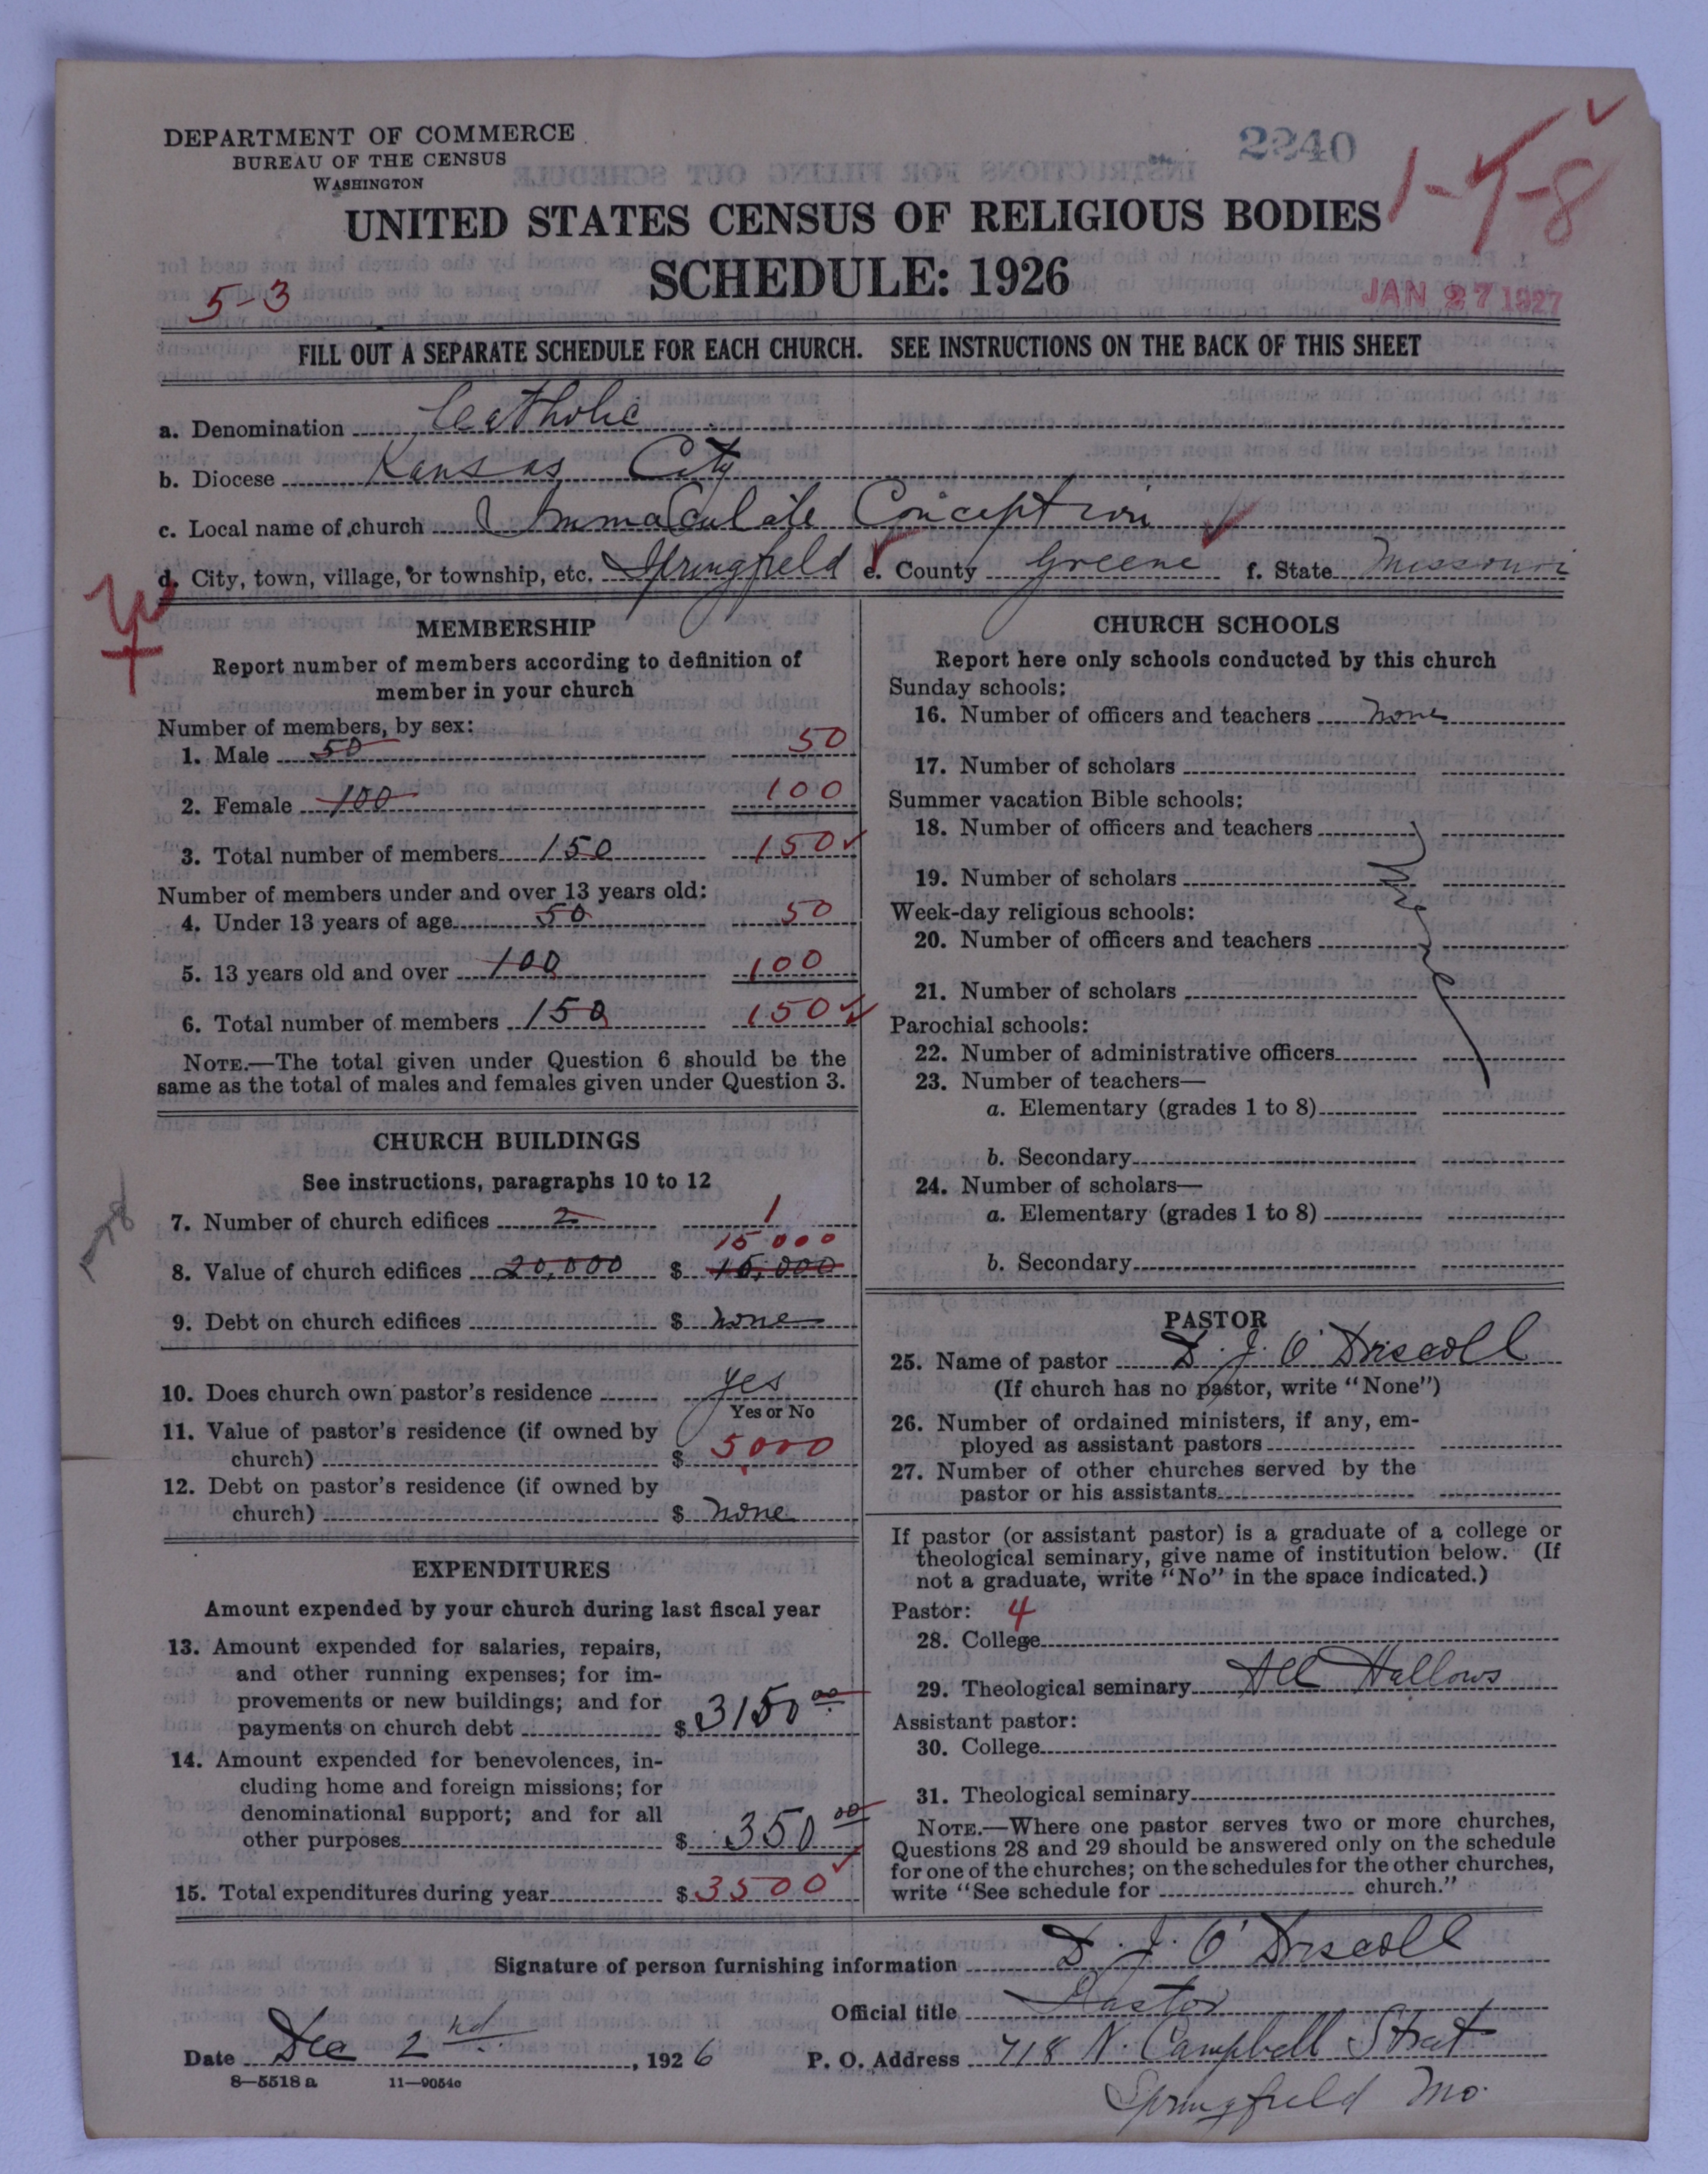 DEPARTMENT OF COMMERCE
BUREAU OF THE CENSUS
WASHINGTON
2240
1-9-8
UNITED STATES CENSUS OF RELIGIOUS BODIES
SCHEDULE: 1926
5-3
JAN 27 1927
FILL OUT A SEPARATE SCHEDULE FOR EACH CHURCH. SEE INSTRUCTIONS ON THE BACK OF THIS SHEET
a. Denomination Catholic
b. Diocese Kansas City
c. Local name of church Immaculate Conception
d. City, town, village, or township, etc. Springfield e. County Greene f. State Missouri
MEMBERSHIP
Report number of members according to definition of
member in your church
Number of members, by sex:
1. Male 50 50
2. Female 100 100
3. Total number of members 150 150
Number of members under and over 13 years old:
4. Under 13 years of age 50 50
5. 13 years old and over 100 100
6. Total number of members 150 150
NOTE.—The total given under Question 6 should be the
same as the total of males and females given under Question 3.
CHURCH BUILDINGS
See instructions, paragraphs 10 to 12
7. Number of church edifices 2 1
15000
8. Value of church edifices 20,000 $ 15,000
9. Debt on church edifices $ none
10. Does church own pastor's residence yes
Yes or No
11. Value of pastor's residence (if owned by
church) $ 5000
12. Debt on pastor's residence (if owned by
church) $ none
EXPENDITURES
Amount expended by your church during last fiscal year
13. Amount expended for salaries, repairs,
and other running expenses; for im-
provements or new buildings; and for
payments on church debt $ 3150 00
14. Amount expended for benevolences, in-
cluding home and foreign missions; for
denominational support; and for all
other purposes $ 350 00
15. Total expenditures during year $ 3500
CHURCH SCHOOLS
Report here only schools conducted by this church
Sunday schools:
16. Number of officers and teachers none
17. Number of scholars
Summer vacation Bible schools:
18. Number of officers and teachers
19. Number of scholars
Week-day religious schools:
20. Number of officers and teachers
21. Number of scholars
Parochial schools:
22. Number of administrative officers
23. Number of teachers—
a. Elementary (grades 1 to 8)
b. Secondary
24. Number of scholars—
a. Elementary (grades 1 to 8)
b. Secondary
PASTOR
25. Name of pastor D. J. O'Driscoll
(If church has no pastor, write "None")
26. Number of ordained ministers, if any, em-
ployed as assistant pastors
27. Number of other churches served by the
pastor or his assistants
If pastor (or assistant pastor) is a graduate of a college or
theological seminary, give name of institution below. (If
not a graduate, write "No" in the space indicated.)
Pastor: 4
28. College
29. Theological seminary All Hallows
Assistant pastor:
30. College
31. Theological seminary
NOTE.—Where one pastor serves two or more churches,
Questions 28 and 29 should be answered only on the schedule
for one of the churches; on the schedules for the other churches,
write "See schedule for church."
Signature of person furnishing information D. J. O'Driscoll
Official title Pastor
Date Dec 2nd, 1926 P. O. Address 718 N. Campbell Street
8—5518 a 11—9054c
Springfield Mo.